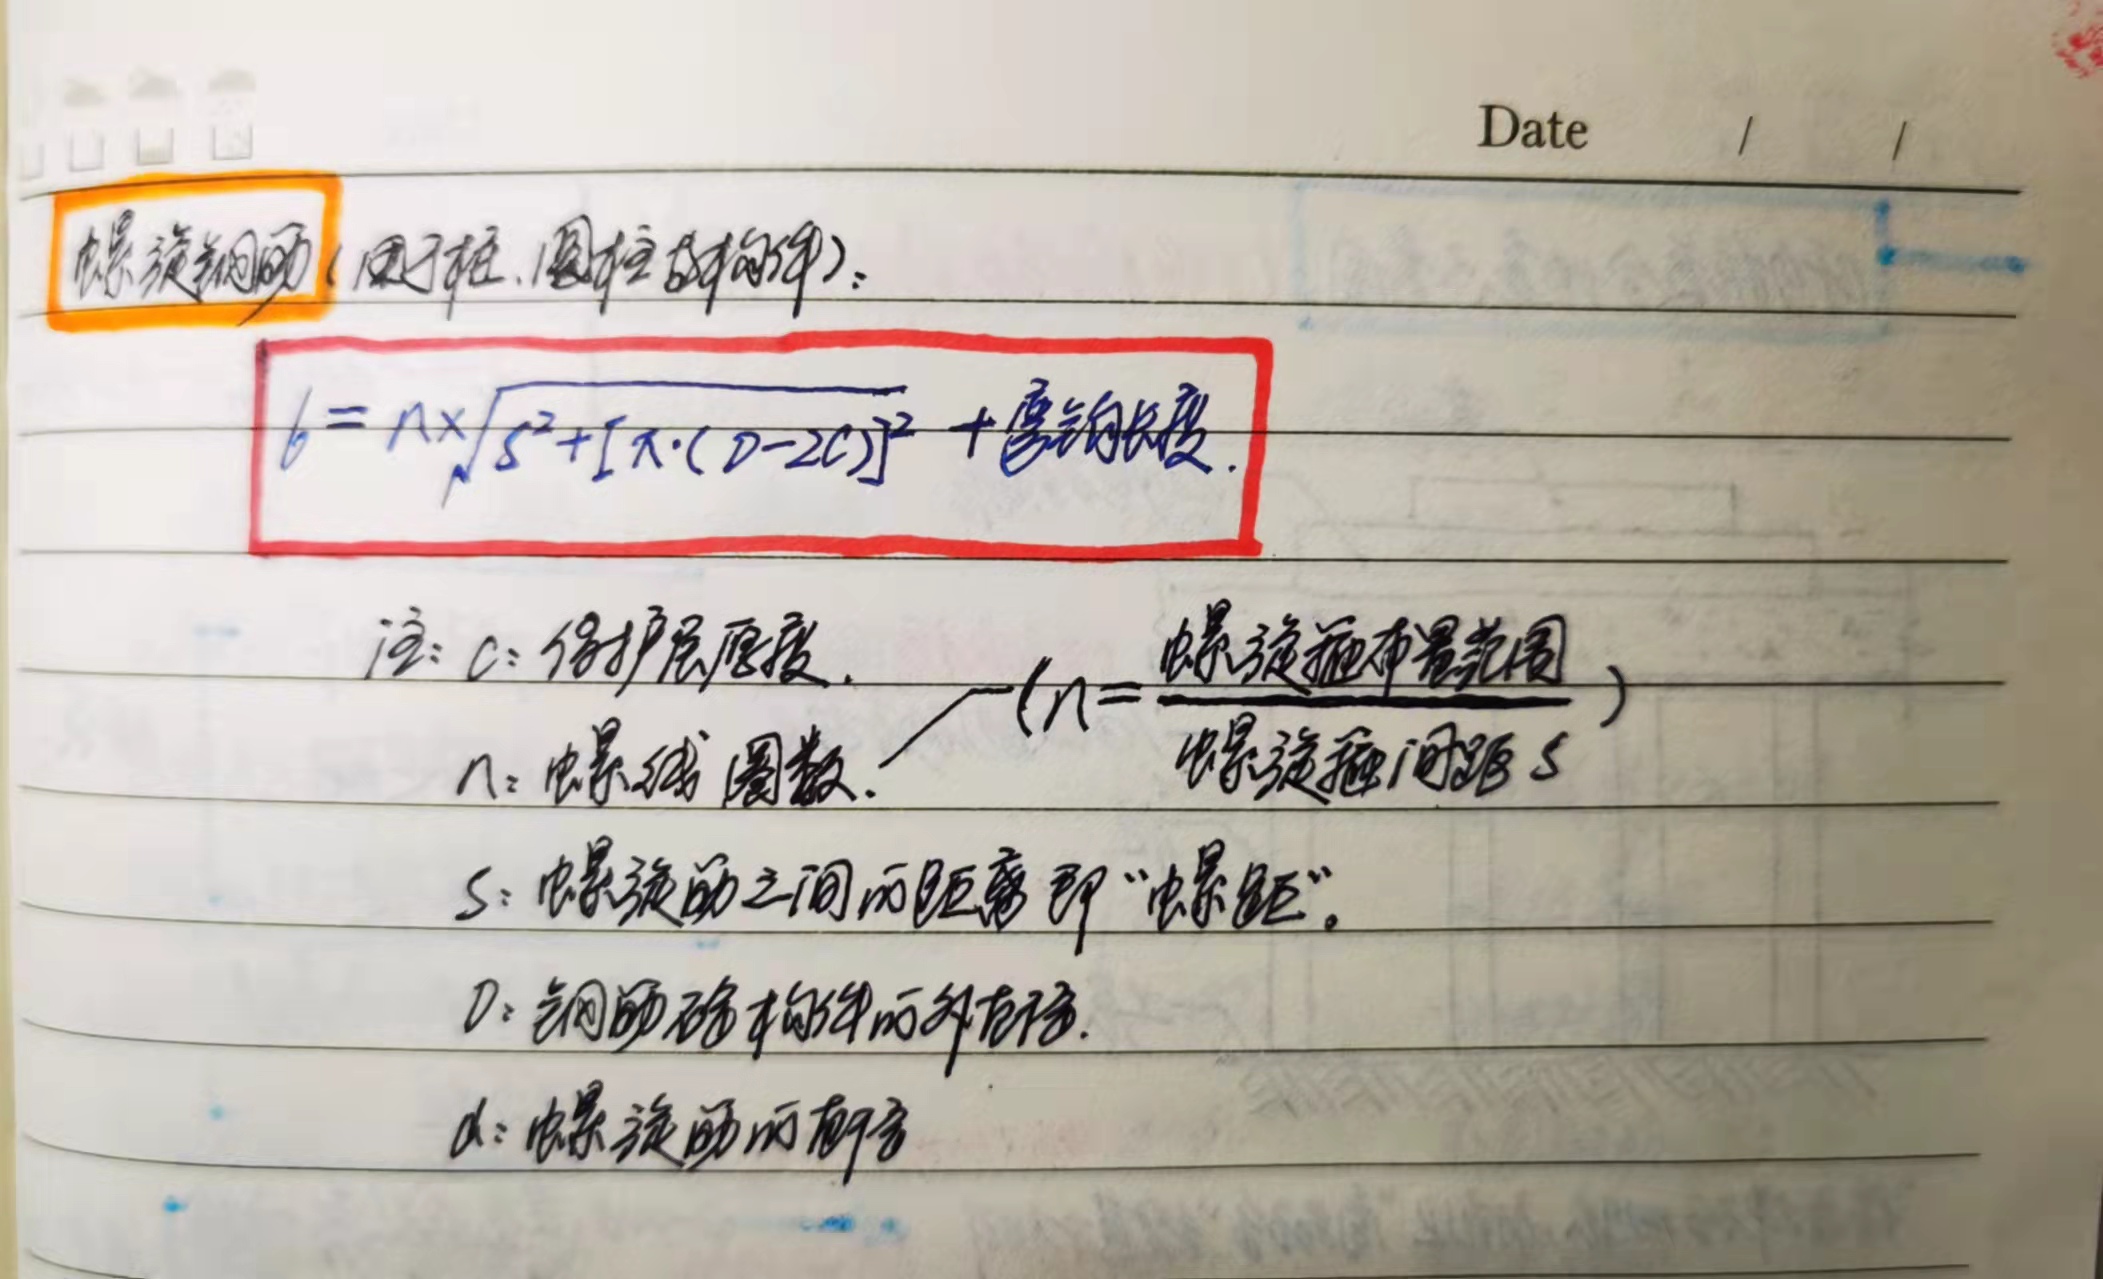 Date / /
螺旋钢筋(用于桩、圆柱故构件):
b = n×√S²+[π·(D-2C)]² +弯钩长度.
注: C: 保护层厚度.
(n= 螺旋箍布置范围
螺旋箍间距 S )
n: 螺线圈数.
S: 螺旋筋之间的距离即“螺距”。
D: 钢筋砼构件的外直径.
d: 螺旋筋的直径